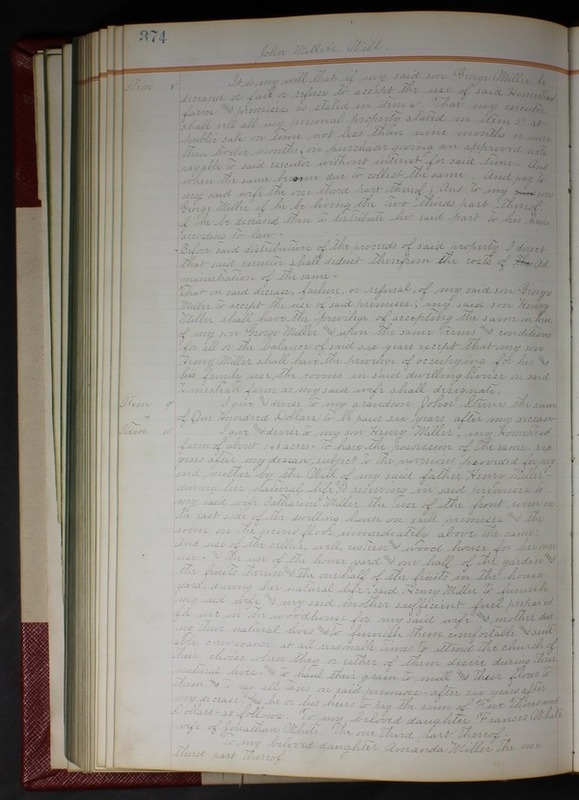 374
John Miller's Will.
Item 8 It is my will that if my said son George Miller be
deceased or fail or refuse to accept the use of said Homestead
farm and premises as stated in item 4" That my executor
shall sell all my personal property stated in item 5" at
public sale on time not less than nine months or more
than twelve months, on purchaser giving an approved note
payable to said executor without interest for said time. And
when the same become due to collect the same. And pay to
my said wife the one third part thereof; And to my son
George Miller if he be living the two thirds part thereof,
if he be deceased then to distribute his said part to his heirs
according to law.
Before said distribution of the proceeds of said property I direct
that said executor shall deduct therefrom the costs of the Ad
ministration of the same.
That on said decease, failure, or refusal, of my said son George
Miller to accept the use of said premises, my said son Henry
Miller shall have the privilege of accepting the same in lieu
of my son George Miller and upon the same terms and conditions
for all or the balance of said six years except that my son
Henry Miller shall have the privilege of occupying for his and
his family use, the rooms in said dwelling house on said
Homestead farm as my said wife shall designate.
Item 9 I give and devise to my grandson John Stem the sum
of One Hundred Dollars to be paid six years after my decease.
Item 10 I give and devise to my son Henry Miller, my Homestead
farm of about acres to have the possession of the same, six
years after my decease, subject to the provisions provided for my
said mother by the Will of my said father Henry Miller
during her natural life and reserving in said premises to
my said wife Catharine Miller the use of the front room on
the east side of the dwelling house on said premises and the
room on the second floor immediately above the same.
And use of the cellar, well, cistern and wood house for her own
use. and the use of the house yard and one half of the garden and
the fruits therein and the one half of the fruits in the house
yard, during her natural life, said Henry Miller to furnish
my said wife and my said mother sufficient fuel prepared
for use in the woodhouse for my said wife and mother dur
ing their natural lives and to furnish them comfortable and suit
able conveyance at all reasonable times to attend the church of
their choice when they or either of them desire during their
natural lives and to haul their grain to mill and their flour to
them and to pay all taxes on said premises after six years after
my decease and he or his heirs to pay the sum of Five Thousand
Dollars as follows: To my beloved daughter Frances White
wife of Jonathan White, the one third part thereof.
To my beloved daughter Amanda Miller the one
third part thereof.